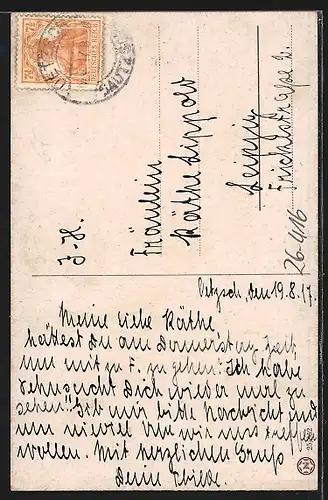 DEUTSCHES REICH
7½ 7½
J.-H.
Fräulein
Käthe Lippold
Leipzig
26-4/16
Oetzsch, den 19.8.17.
Meine liebe Käthe,
hättest Du am Donnerstag Zeit
um mit zu F. zu gehen? Ich habe
Sehnsucht Dich wieder mal zu
sehen!! Gib mir bitte Nachricht und
um wieviel Uhr wir uns treffen
wollen. Mit herzlichem Gruß
Deine